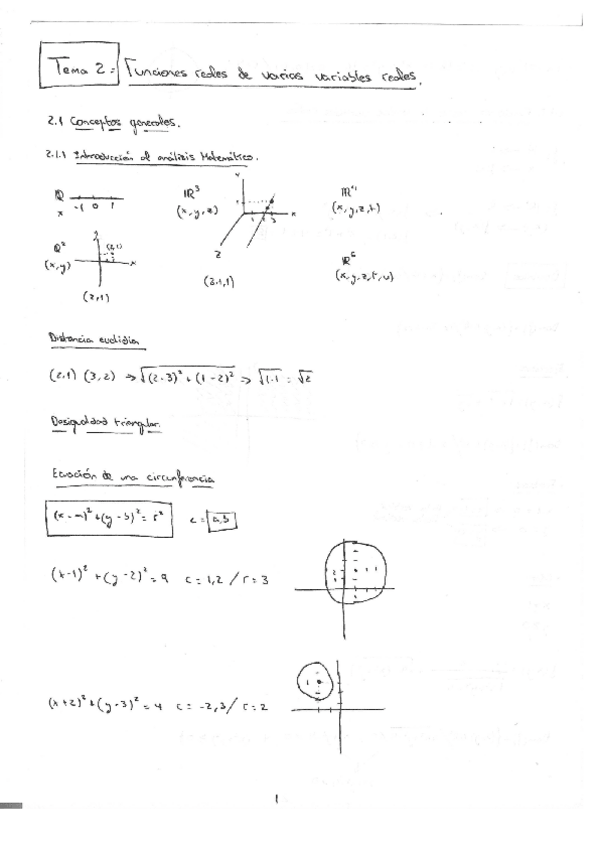 Tema 2: Funciones reales de varias variables reales.
2.1 Conceptos generales.
2.1.1 Introducción al análisis Matemático.
ℝ
x
-1 0 1
ℝ²
(x,y)
y
(2,1)
x
(2,1)
ℝ³
(x,y,z)
y
x
z
(3,1,1)
ℝ⁴
(x,y,z,t)
(x,y,z,t,u)
Distancia euclidia
(2,1) (3,2) → √(2-3)² + (1-2)² => √1·1 = √2
Desigualdad triangular.
Ecuación de una circunferencia
(x-a)² + (y-b)² = r² c = a,b
(x-1)² + (y-2)² = 9 c = 1,2 / r = 3
(x+2)² + (y-3)² = 4 c = -2,3 / r = 2
1